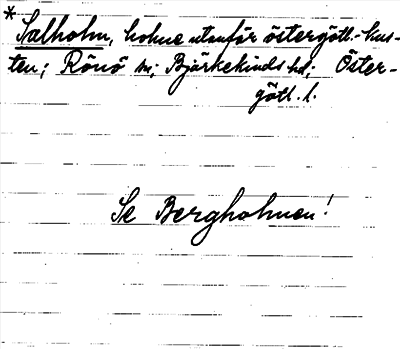 *Salholm, holme utanför östergötl.-kus-
ten; Rönö sn; Björkekinds hd; Öster-
götl. l.
Se Bergholmen!